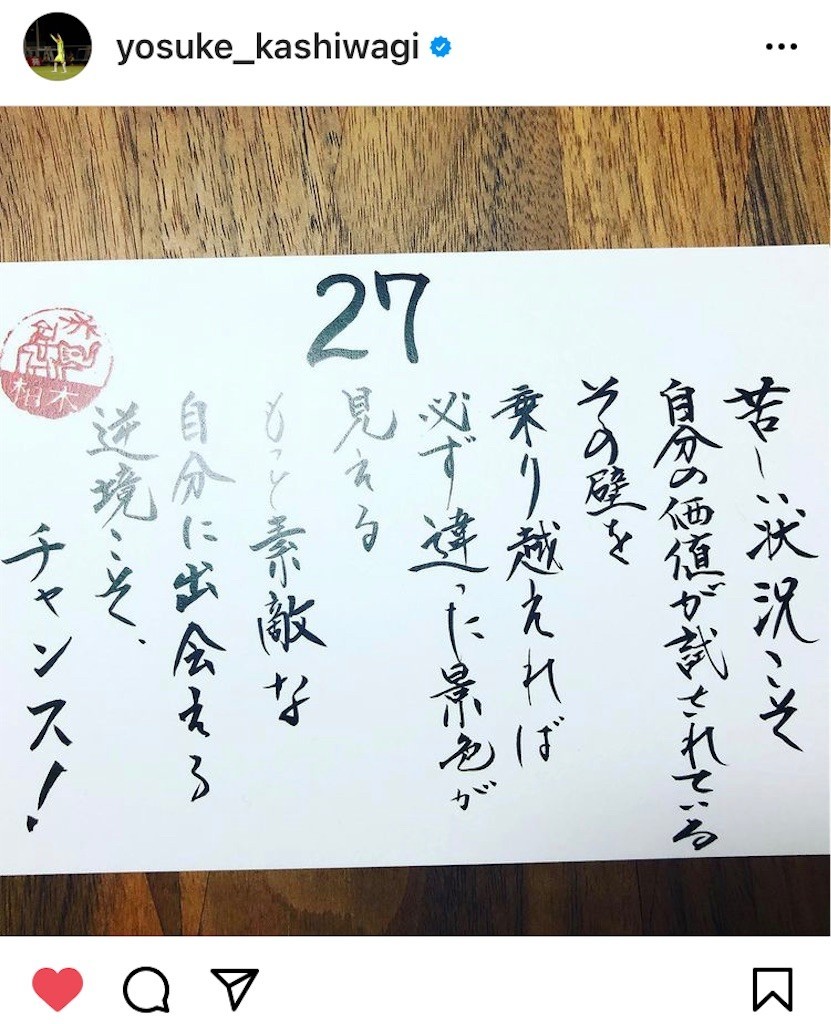 yosuke_kashiwagi
27
苦しい状況こそ
自分の価値が試されている
その壁を
乗り越えれば
必ず違った景色が
見える
もっと素敵な
自分に出会える
逆境こそ、
チャンス!
柏木